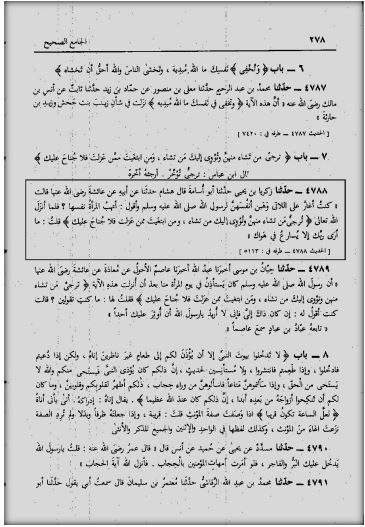 ٢٧٨ الجامع الصحيح
٦ ــ باب ﴿ وَتُخْفِي ﴾ نَفسِكَ ما الله مُبدِيهِ ، وتَخشى الناسَ واللهُ أحقُّ أن تَخشاه ﴾
٤٧٨٧ ــ حدّثنا محمدُ بن عبد الرحيم حدَّثنا معلى بن منصور عن حمَّاد بن زيد حدَّثنا ثابتٌ عن أنس بن
مالك رضي الله عنه « أنَّ هذه الآية ﴿ وتخفي في نفسك ما الله مبديه ﴾ نزلت في شأن زينبَ بنت جَحش وزيدِ بن
حارثة »
[ الحديث ٤٧٨٧ ــ طرفه في : ٧٤٢٠ ]
٧ ــ باب ﴿ ترجي من تشاء منهنَّ وتُؤوي إليك مَن تشاء ، ومَن ابتغيتَ ممَّن عزلتَ فلا جُناحَ عليك ﴾
قال ابن عباس : ترجئُ تُؤَخِّر . أرجئه أخِّره
٤٧٨٨ ــ حدّثنا زكريا بن يحيى حدَّثنا أبو أسامةَ قال هشام حدثنا عن أبيه عن عائشة رضي الله عنها قالت
« كنتُ أغارُ على اللاتي وَهَبن أنفسَهنَّ لرسولِ الله صلى الله عليه وسلم وأقول : أتهبُ المرأةُ نفسها ؟ فلما أنزلَ
الله تعالى ﴿ تُرجي من تشاء منهنَّ وتُؤوي إليك من تشاء ، ومن ابتغيتَ ممن عزلت فلا جناح عليك ﴾ قلتُ : ما
أرى ربَّك إلا يُسارعُ في هَواك »
[ الحديث ٤٧٨٨ ــ طرفه في : ٥١١٣ ]
٤٧٨٩ ــ حدّثنا حِبَّانُ بن موسى أخبرَنا عبدُ الله أخبرَنا عاصمٌ الأحولُ عن مُعاذةَ عن عائشةَ رضي الله عنها
« أن رسول الله صلى الله عليه وسلم كان يَستأذِنُ في يوم المرأة منا بعدَ أن أنزلت هذه الآية ﴿ ترجي مَن تشاء
منهن وتؤوي إليك من تشاء ، ومَن ابتغيتَ ممن عَزَلْتَ فلا جُناحَ عليك ﴾ فقلتُ لها : ما كنتِ تقولين ؟ قالت
كنت أقولُ له : إن كان ذاكَ إليَّ فإني لا أُريدُ يا رسولَ الله أن أُوثِرَ عليك أحداً »
تابعهُ عبَّادُ بن عباد سمعَ عاصماً
٨ ــ باب ﴿ لا تَدخُلوا بيوتَ النبيِّ إلا أن يُؤذَنَ لكم إلى طعامٍ غيرَ ناظرينَ إناهُ ، ولكن إذا دُعيتم
فادخُلوا ، وإذا طَعِمتم فانتشروا ، ولا مستأنسين لحديث ، إنَّ ذلكم كان يُؤذي النبيَّ فيَستحي منكم والله لا
يَستَحي من الحق ، وإذا سألتموهنَّ مَتاعاً فاسألوهنَّ من وراءِ حجاب ، ذلكم أطهرُ لقلوبكم وقلوبهن ، وما كان
لكم أن تُؤذوا رسول الله ولا أن تَنكِحوا أزواجَهُ من بَعدِه أبدا ، إنَّ ذلكم كان عندَ الله عظيما ﴾ . يقال إناهُ : إدراكه
﴿ لعلَّ الساعةَ تكونُ قريبا ﴾ إذا وصَفتَ صفةَ المؤنث قلتَ : قريبة ، وإذا جعلتَهُ ظرفاً وبدلاً ولم تُردِ الصفةَ
نزَعتَ الهاءَ منَ المؤنث ، وكذلك لفظها في الواحدِ والاثنينِ والجميعِ للذكر والأنثى
٤٧٩٠ ــ حدّثنا مسدَّدٌ عن يحيى عن حُميد عن أنس قال « قال عمرُ رضي الله عنه : قلتُ يا رسولَ الله
يَدخُل عليكَ البَرُّ والفاجر ، فلو أمَرتَ أمهاتِ المؤمنين بالحِجاب . فأنزلَ الله آيةَ الحجاب »
٤٧٩١ ــ حدّثنا محمدُ بن عبد الله الرَّقاشيُّ حدَّثنا مُعتمرُ بن سُليمانَ قال سمعتُ أبي يقول حدَّثنا أبو